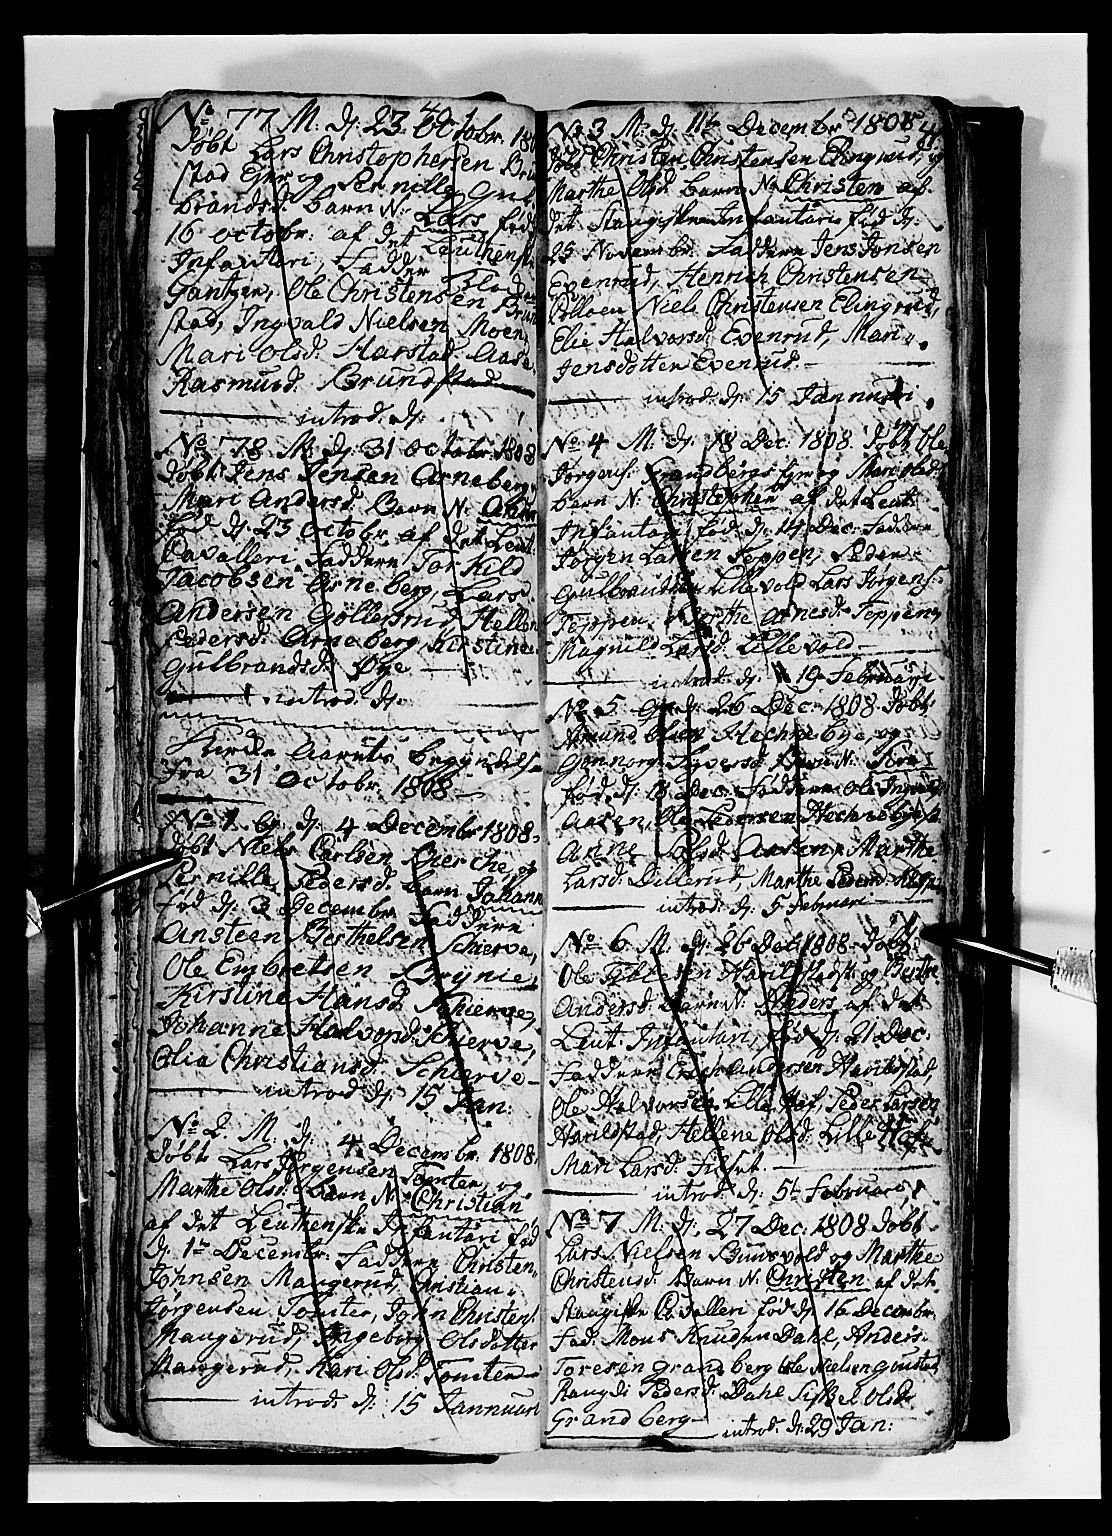 No 77 M. d. 23 Octobr. 180
Døbt Lars Christophersen Brun
stad Eier og Pernille Gul
brandsd. Barn N. Lars fød
16 Octobr. af det Leuthensk.
Infanteri, Fadder
Gantzen, Ole Christensen Brun
stad, Ingvald Nielsen Moen
Mari Olsd. Harstad Aase
Rasmusd. Brundstad
introd. d.
No 78 M. d. 31 Octobr. 1808
Døbt Jens Jensen Arneberg,
Mari Andersd. Barn N.
fød d. 23 Octobr. af det Leut.
Cavalleri. Faddere, Torkild
Jacobsen Arneberg, Lars
Andersen Gøllerud, Hellen
Pedersd. Arneberg Kirstine
Gulbrandsd. Øye
introd. d.
Kerke Aarets begyndelse
fra 31 Octobr. 1808
No 1. G. d. 4 Decembr 1808
Døbt Niels Carlsen Bierche, og
Pernille Pedersd. Barn Johann
fød d. 3 Decembr. Faddere
Ansteen Berthelsen Schierve,
Ole Embretsen Brynie,
Kirstine Hansd. Schierve,
Johanne Halvorsd. Schierve,
Olia Christiansd. Schierve
introd. d. 15 Jan:
No 2. M. d. 4 Decembr. 1808
Døbt Lars Jørgensen Tomter, og
Marthe Olsd. Barn N. Christian
af det Leuthenske Infantari fød
d. 1te Decembr. Faddere Christen
Johnsen Maugerud, Christian
Jørgensen Tomter, John Christens.
Maugerud, Ingeborg Olsdotter
Maugerud, Kari Olsd. Tomter
introd. d. 15 Jannuari
No 3 M. d. 11te Decembr 1808
Døbt Christen Christensen Elingrud, og
Marthe Olsd. Barn N. Christen af
det Stangiske Infantari fød d.
25 Novembr. Faddere Jens Jonsen
Evenrud, Henrich Christensen
Niels Christensen Elingrud,
Elie Halvorsd. Evenrud, Mari
Jensdotter Evenrud.
introd. d. 15 Jannuari
No 4 M. d. 18 Dec: 1808. Døbt Ole
Jørgens. Grandbergs Eye og Mari Olsd.
Barn N. Christopher af det Leut.
Infantari fød d. 14 Dec. Faddere
Jørgen Larsen Teppen, Peder
Gulbrandsen Lillevold Lars Jørgens.
Teppen, Berthe Arnesd. Teppen,
Magnild Larsd. Lillevold
introd. d. 19 Februari
No 5 G. d. 26 Dec. 1808. Døbt
Amund Olsen Hechnebye, og
Gønnorg Syversd. Barn N.
fød. d. 18 Dec. Faddere Ole
Aasen, Ole Pedersen Hechnebye,
Anne Olsd. Aasen, Marthe
Larsd. Dillerud, Marthe Pedersd.
introd. d. 5 Februari
No 6 M. d. 26 Dec. 1808. Døbt
Ole Harildstad og Berthe
Andersd. Barn N. Anders af det
Leut. Infantari, fød d. 21 Dec.
Faddere Erich Andersen Harildstad,
Ole Halvorsen Lille Haf, Peder Larsen
Harildstad, Hellene Olsd. Lille Haf,
Mari Larsd.
introd. d. 5t Februari
No 7 M. d. 27 Dec: 1808 Døbt
Lars Nielsen Gunsvold og Marthe
Christensd. Barn N. Christen af det
Stangiske Cavalleri fød d. 16 Decembr
Fad. Mons Knudsen Dahl, Anders
Toresen Grandberg Ole Nielsen
Rangdi Pedersd. Dahl Sidsel Olsd.
Grandberg
introd. d. 29 Jan: